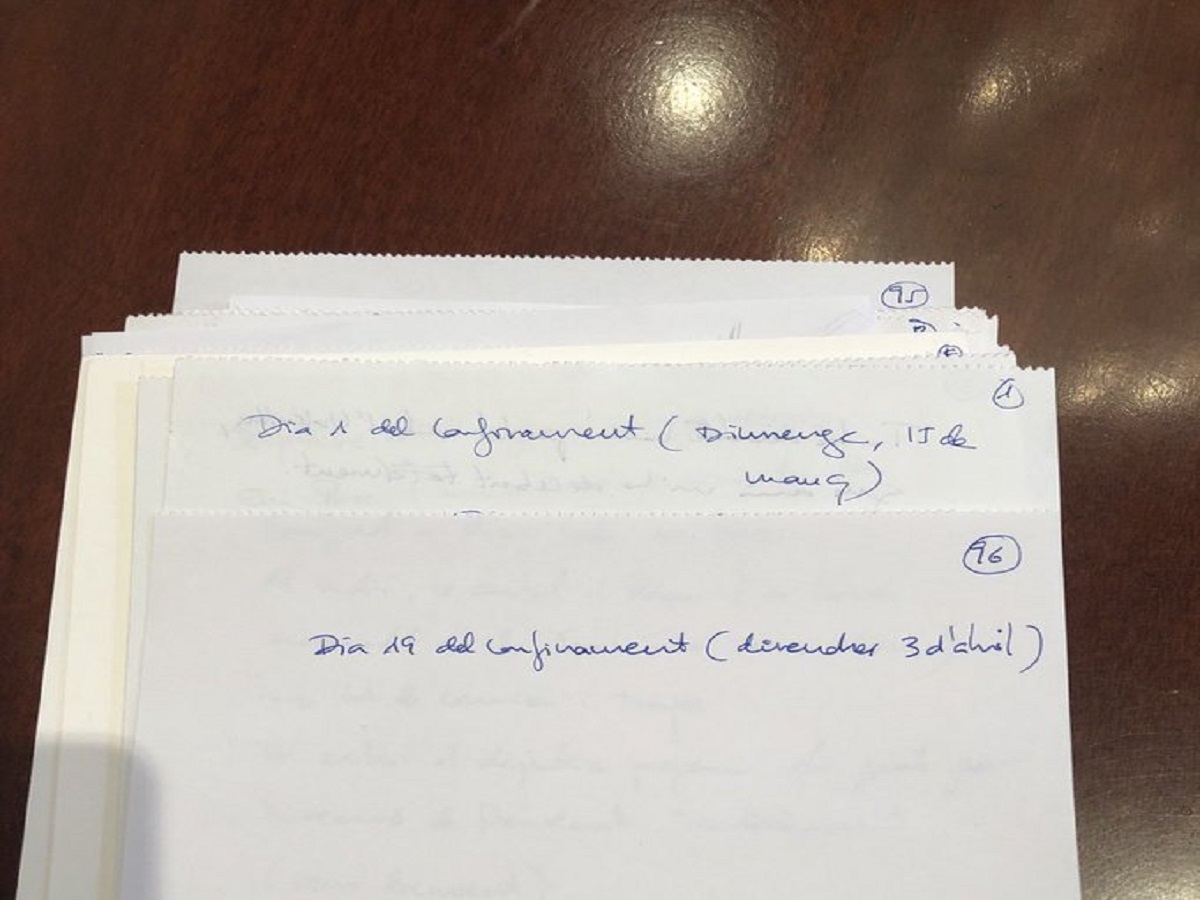 95
1
Dia 1 del confinament (Diumenge, 15 de
març)
96
Dia 19 del confinament (divendres 3 d'abril)